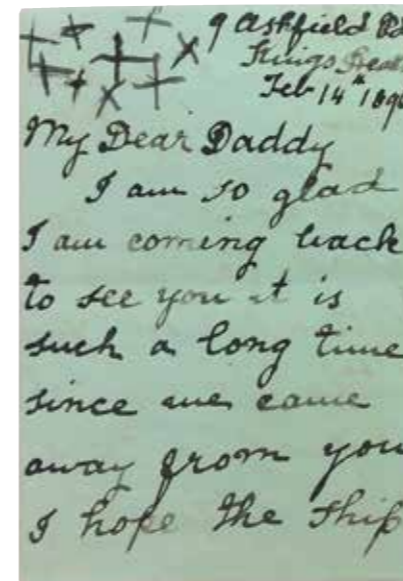 9 Ashfield Rd
Kings Heath
Feb 14th 189
My Dear Daddy
I am so glad
I am coming back
to see you it is
such a long time
since we came
away from you
I hope the ship